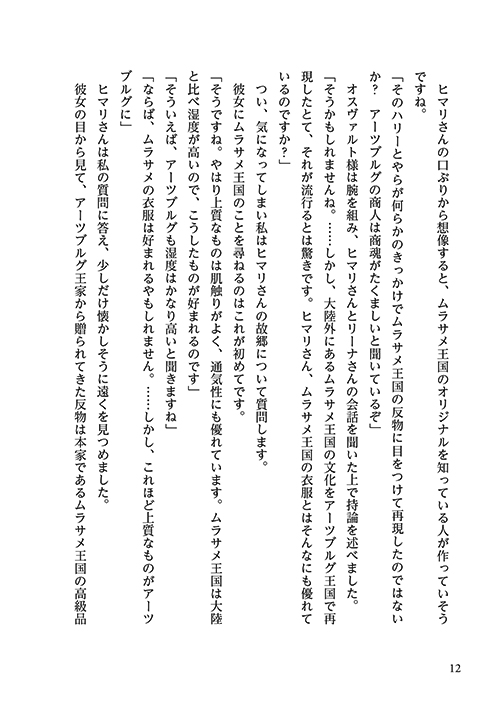 ヒマリさんの口ぶりから想像すると、ムラサメ王国のオリジナルを知っている人が作っていそう
ですね。
「そのハリーとやらが何らかのきっかけでムラサメ王国の反物に目をつけて再現したのではない
か？　アーツブルグの商人は商魂がたくましいと聞いているぞ」
オスヴァルト様は腕を組み、ヒマリさんとリーナさんの会話を聞いた上で持論を述べました。
「そうかもしれませんね。……しかし、大陸外にあるムラサメ王国の文化をアーツブルグ王国で再
現したとて、それが流行するとは驚きです。ヒマリさん、ムラサメ王国の衣服とはそんなにも優れて
いるのですか？」
つい、気になってしまい私はヒマリさんの故郷について質問します。
彼女にムラサメ王国のことを尋ねるのはこれが初めてです。
「そうですね。やはり上質なものは肌触りがよく、通気性にも優れています。ムラサメ王国は大陸
と比べ湿度が高いので、こうしたものが好まれるのです」
「そういえば、アーツブルグも湿度はかなり高いと聞きますね」
「ならば、ムラサメの衣服は好まれるやもしれません。……しかし、これほど上質なものがアーツ
ブルグに」
ヒマリさんは私の質問に答え、少しだけ懐かしそうに遠くを見つめました。
彼女の目から見て、アーツブルグ王家から贈られてきた反物は本家であるムラサメ王国の高級品
12